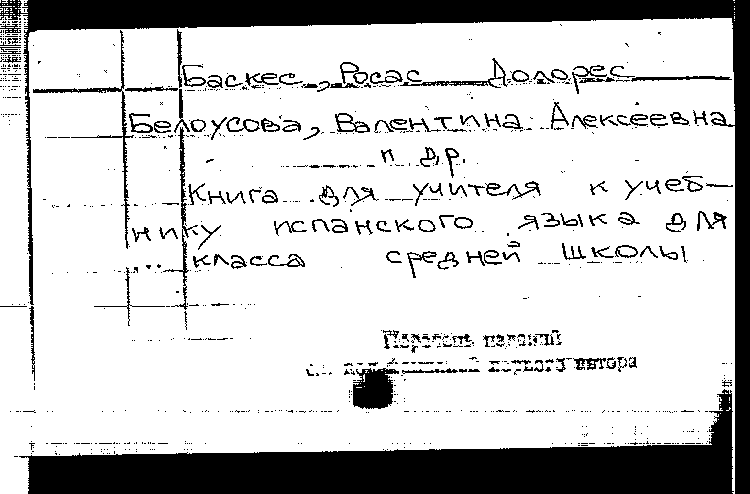 Баскес, Росас Долорес
Белоусова, Валентина Алексеевна
и др.
Книга для учителя к учеб-
нику испанского языка для
... класса средней школы
Перечень изданий
см. под фамилией первого автора